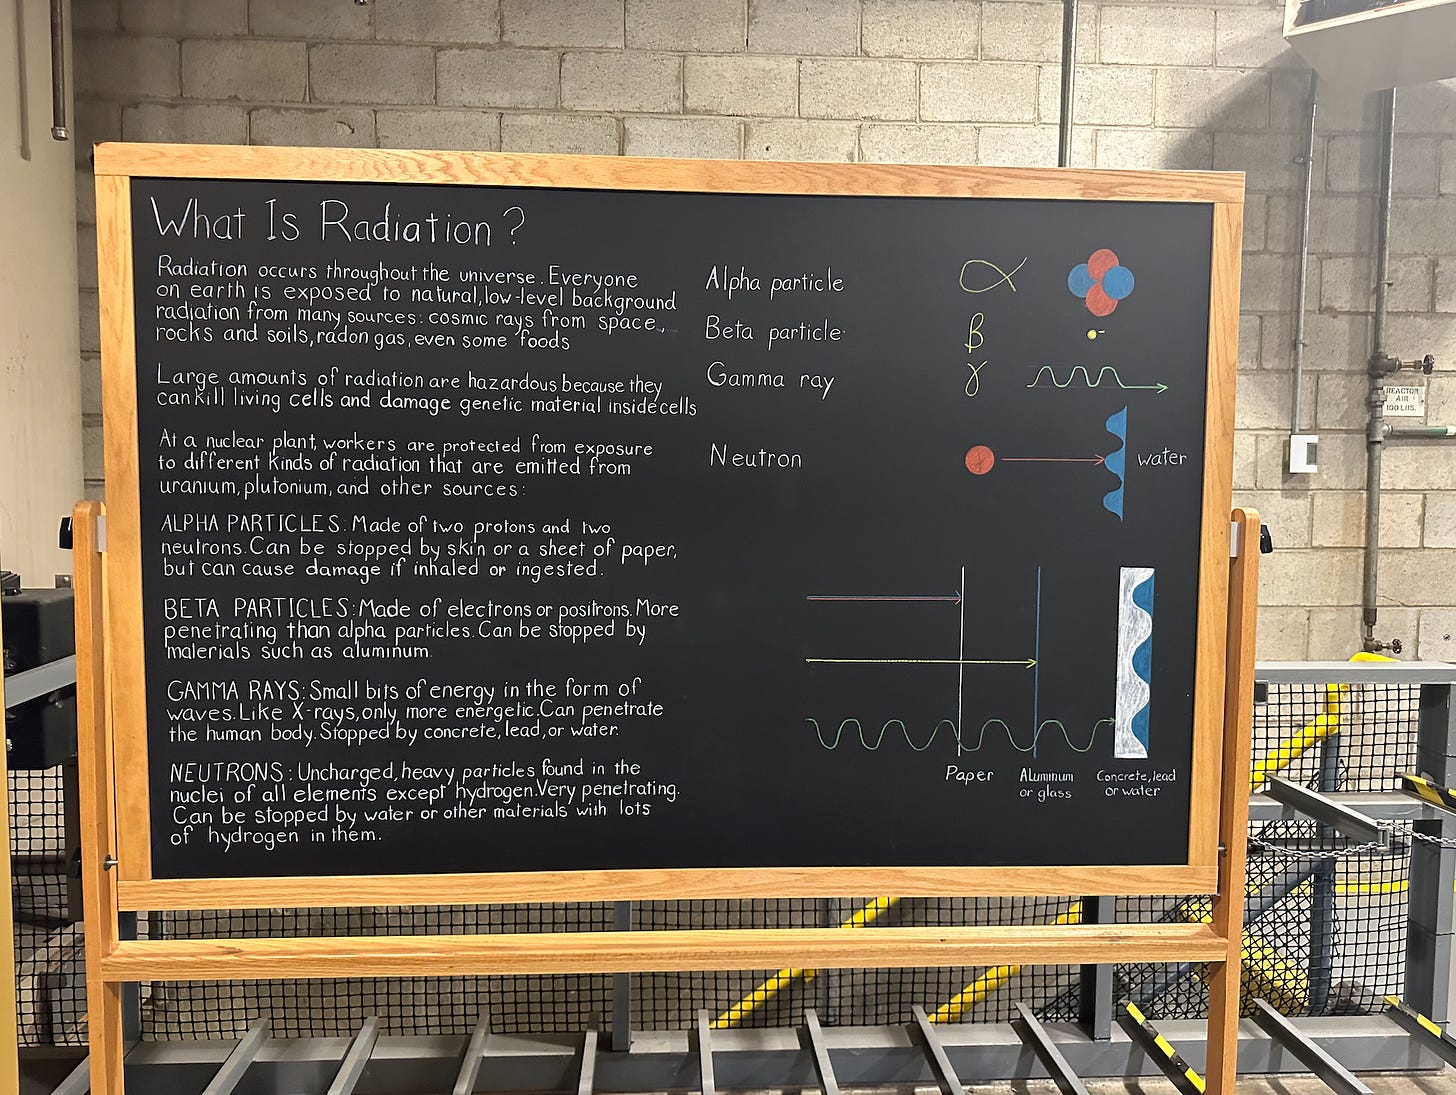 What Is Radiation?
Radiation occurs throughout the universe. Everyone
on earth is exposed to natural, low-level background
radiation from many sources: cosmic rays from space,
rocks and soils, radon gas, even some foods
Large amounts of radiation are hazardous because they
can kill living cells and damage genetic material inside cells
At a nuclear plant, workers are protected from exposure
to different kinds of radiation that are emitted from
uranium, plutonium, and other sources:
ALPHA PARTICLES: Made of two protons and two
neutrons. Can be stopped by skin or a sheet of paper,
but can cause damage if inhaled or ingested.
BETA PARTICLES: Made of electrons or positrons. More
penetrating than alpha particles. Can be stopped by
materials such as aluminum.
GAMMA RAYS: Small bits of energy in the form of
waves. Like X-rays, only more energetic. Can penetrate
the human body. Stopped by concrete, lead, or water.
NEUTRONS: Uncharged, heavy particles found in the
nuclei of all elements except hydrogen. Very penetrating.
Can be stopped by water or other materials with lots
of hydrogen in them.
Alpha particle α
Beta particle β -
Gamma ray γ
Neutron water
Paper
Aluminum
or glass
Concrete, lead
or water
REACTOR
AIR
100 LBS.